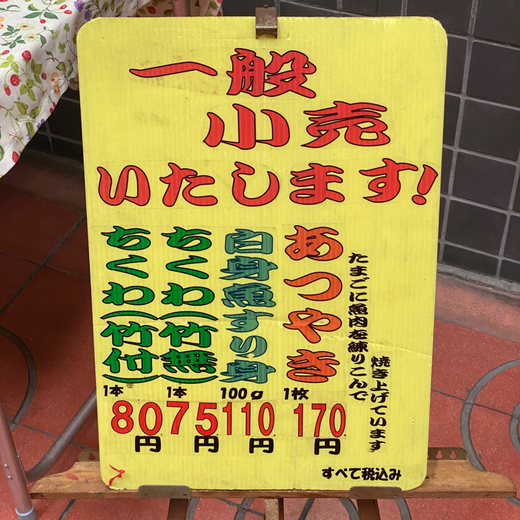 一般
小売
いたします!
あつやき
たまごに魚肉を練りこんで
焼き上げています
1枚
170
円
白身魚すり身
100g
110
円
ちくわ(竹無)
1本
75
円
ちくわ(竹付)
1本
80
円
すべて税込み